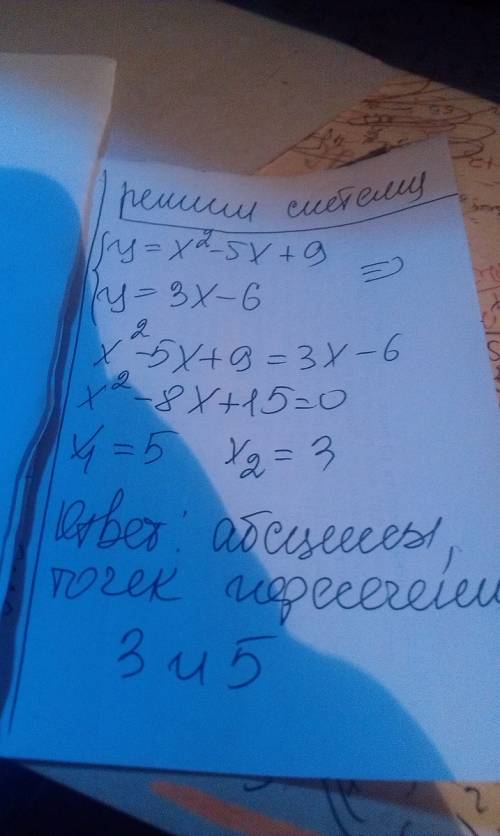 решим систему
{y = x² - 5x + 9
{y = 3x - 6 =>
x² - 5x + 9 = 3x - 6
x² - 8x + 15 = 0
x₁ = 5 x₂ = 3
Ответ: абсциссы,
точек пересечения
3 и 5